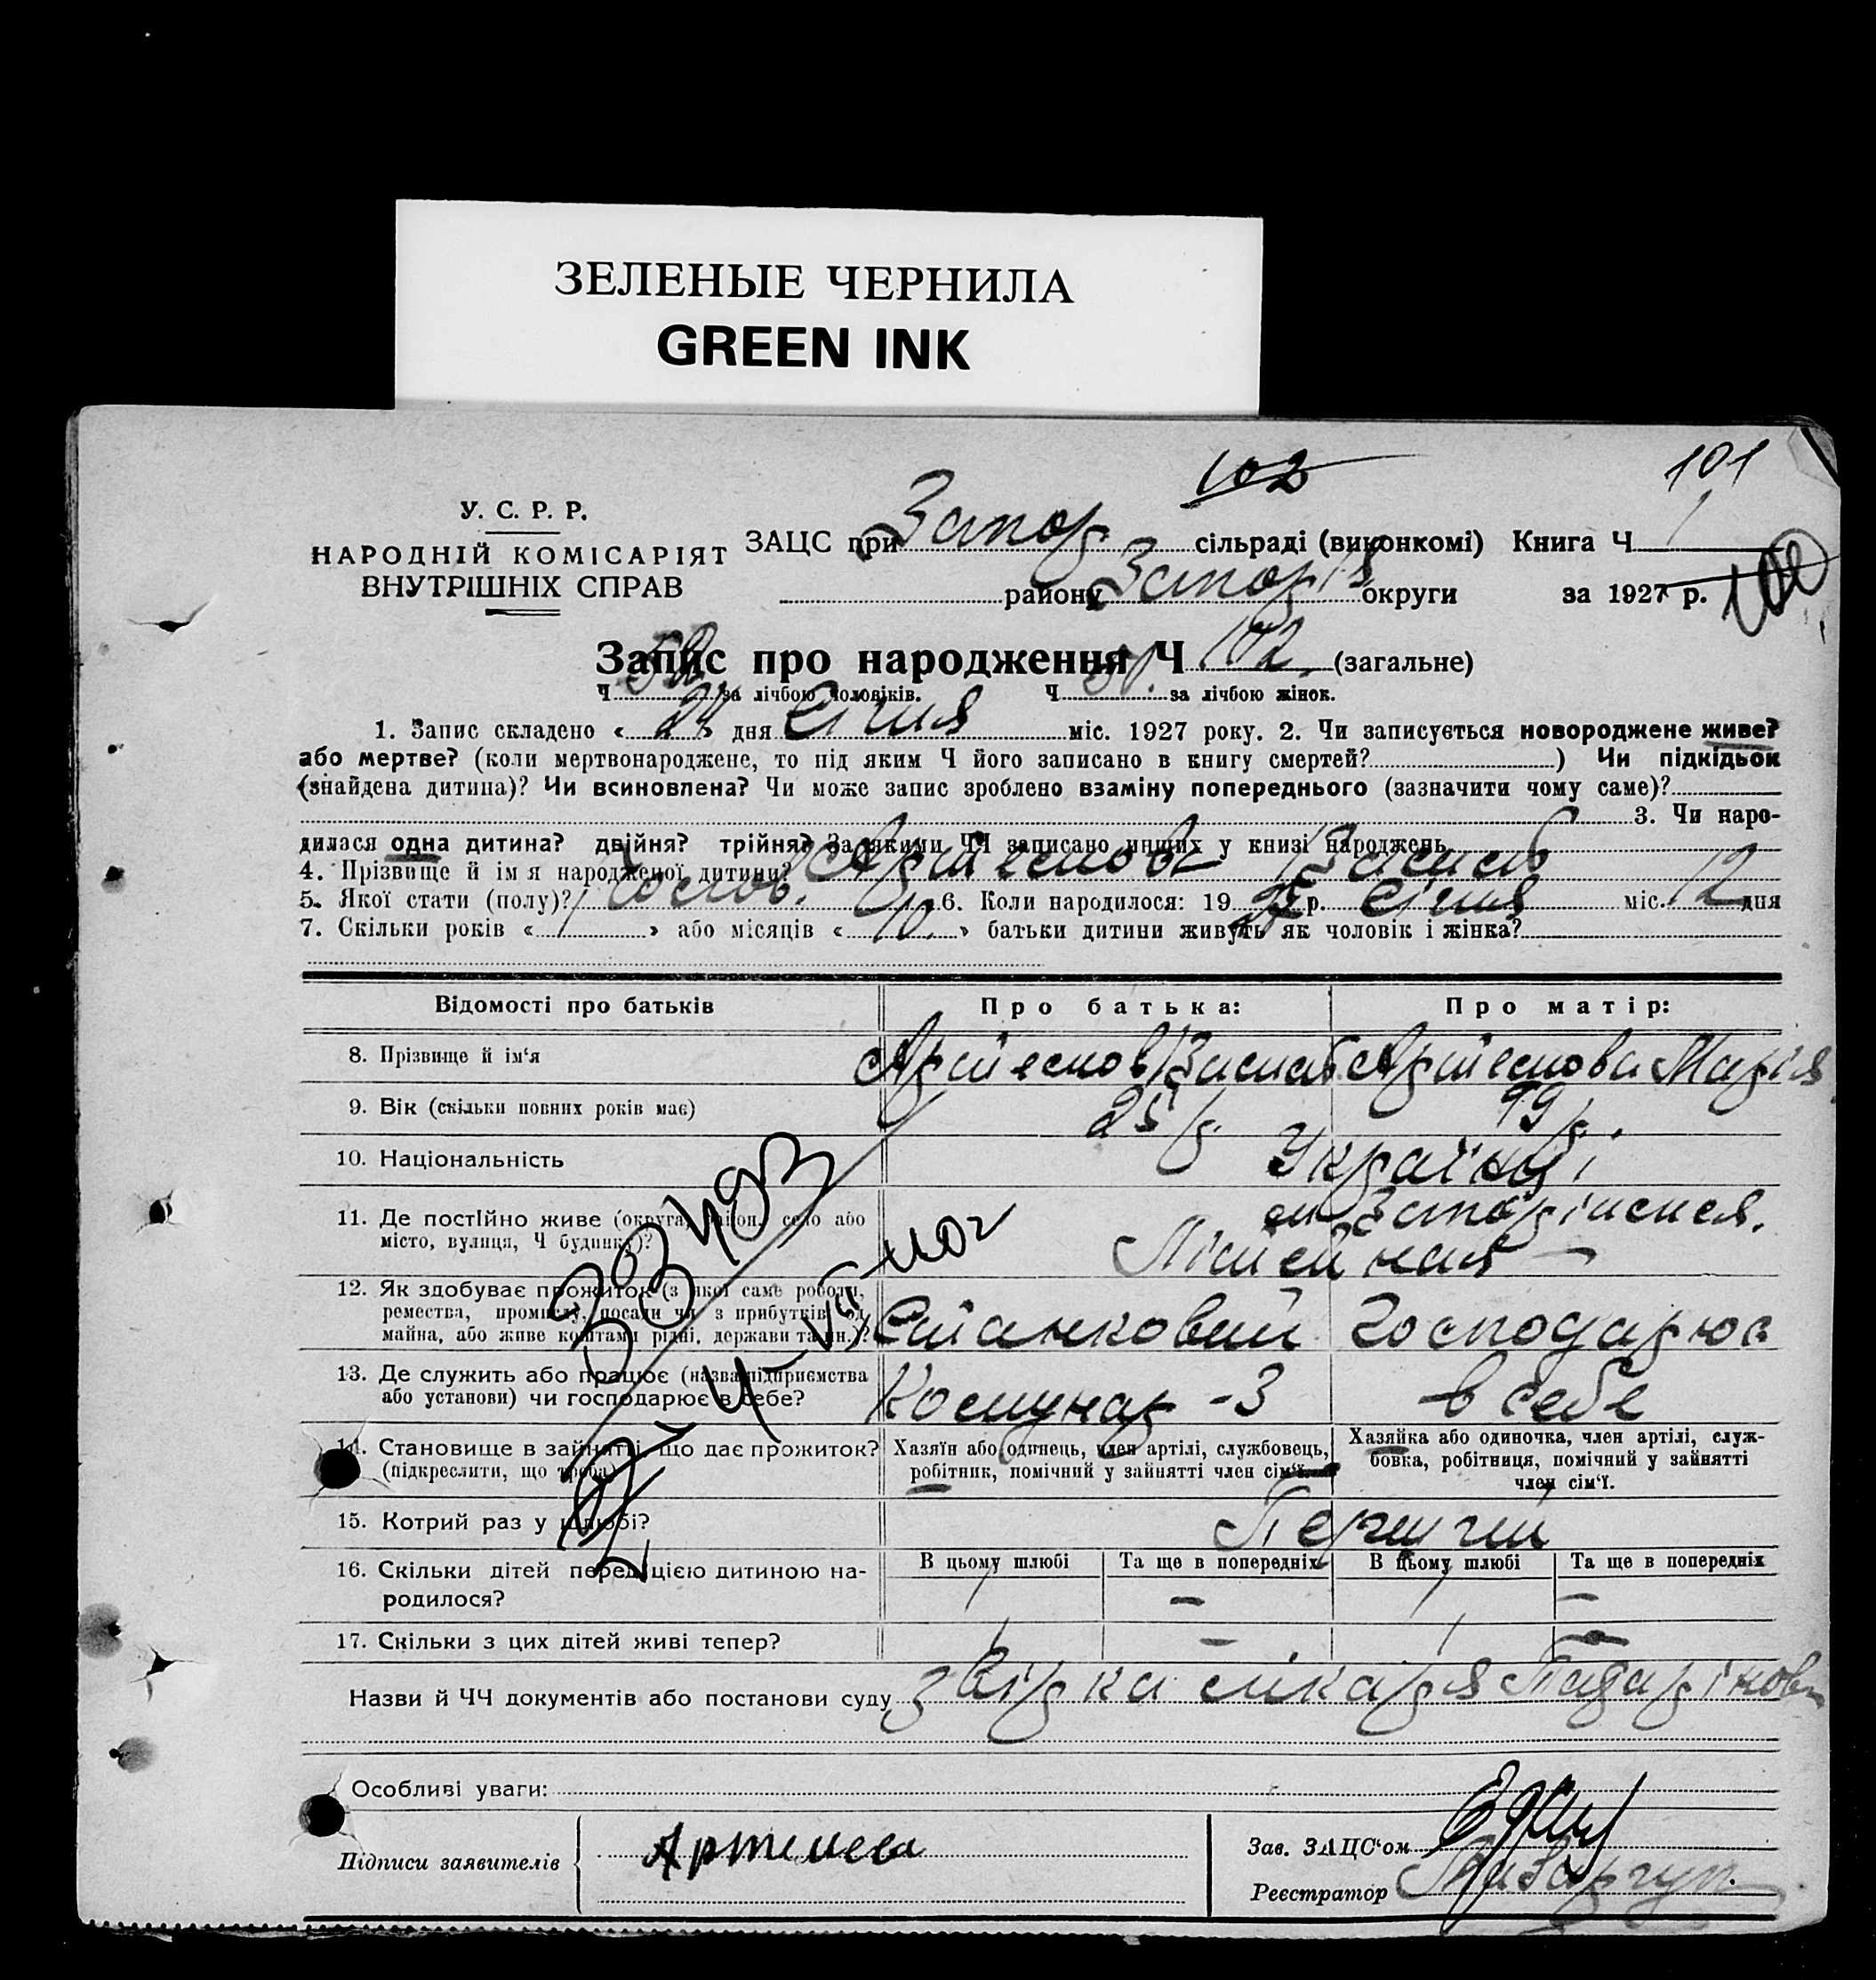 ЗЕЛЕНЫЕ ЧЕРНИЛА
GREEN INK
102
101
У. С. Р. Р.
НАРОДНІЙ КОМІСАРІЯТ
ВНУТРІШНІХ СПРАВ
ЗАЦС при Запор сільраді (виконкомі) Книга Ч 1
району Запоріз округи за 1927 р.
100
Запис про народження Ч 102. (загальне)
Ч 52 за лічбою чоловіків. Ч 50. за лічбою жінок.
1. Запис складено « 24 » дня Січня міс. 1927 року. 2. Чи записується новороджене живе?
або мертве? (коли мертвонароджене, то під яким Ч його записано в книгу смертей? ) Чи підкідьок
(знайдена дитина)? Чи всиновлена? Чи може запис зроблено взаміну попереднього (зазначити чому саме)?
3. Чи наро-
дилася одна дитина? двійня? трійня? За якими ЧЧ записано инших у книзі народжень
4. Прізвище й ім я народженої дитини?
5. Якої стати (полу)? Чолов. 6. Коли народилося: 19 27 р. Січня міс. 12 дня
7. Скільки років « 1 » або місяців « 10. » батьки дитини живуть як чоловік і жінка?
Відомості про батьків
Про батька:
Про матір:
8. Прізвище й ім‘я
Марія
9. Вік (скільки повних років має)
25 р.
19 р.
10. Національність
Україн
11. Де постійно живе (округа, район, село або
місто, вулиця, Ч будинку)?
м Запоріжжя.
Літейная
12. Як здобуває прожиток (з якої саме роботи,
ремества, промислу, посади чи з прибутків од
майна, або живе коштами рідні, держави та ин.)?
Станковий
Господарює
13. Де служить або працює (назва підприємства
або установи) чи господарює в себе?
Комунар - 3
в себе
14. Становище в зайнятті, що дає прожиток?
(підкреслити, що треба)
Хазяїн або одинець, член артілі, службовець,
робітник, помічний у зайнятті член сім‘ї.
Хазяйка або одиночка, член артілі, служ-
бовка, робітниця, помічний у зайнятті
член сім‘ї.
15. Котрий раз у шлюбі?
Перший
16. Скільки дітей перед цією дитиною на-
родилося?
В цьому шлюбі
Та ще в попередніх
В цьому шлюбі
Та ще в попередніх
1 — 1 —
17. Скільки з цих дітей живі тепер?
1 — 1 —
Назви й ЧЧ документів або постанови суду
лікаря
Особливі уваги:
Підписи заявителів
Зав. ЗАЦС‘ом
Реєстратор